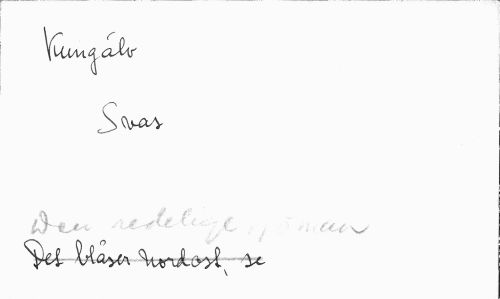 Kungälv
Svas
Den redelige sjöman
Det blåser nordost, se